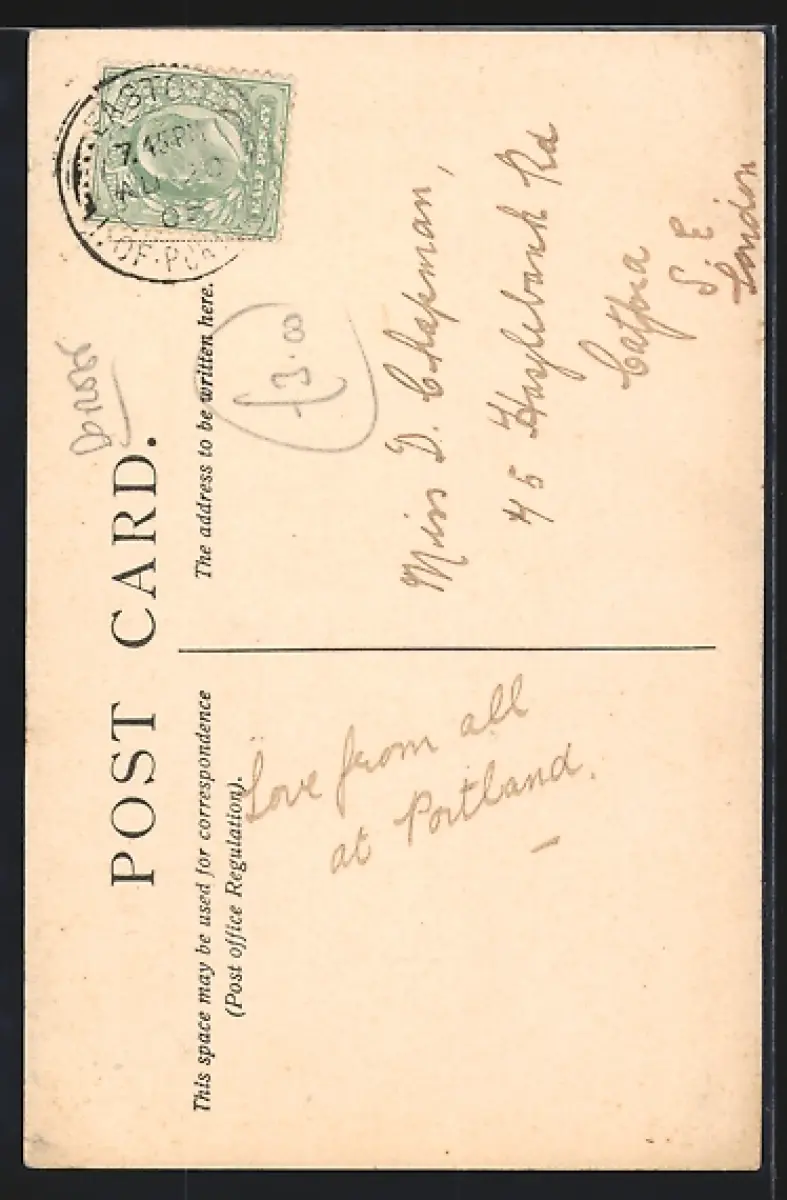 POST CARD.
This space may be used for correspondence
(Post office Regulation).
The address to be written here.
EASTON
7.45 PM
AU 20
OF PO
HALF PENNY
£3.00
Love from all
at Portland.
Miss D. Chapman,
45 Hazlebank Rd
Catford
S E
London